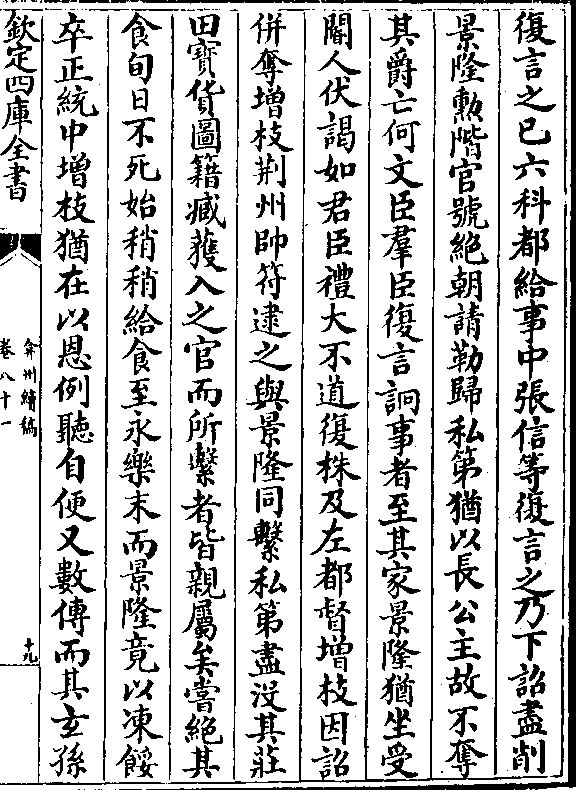 復言之已六科都給事中張信等復言之乃下詔盡削
景隆勲階官號絶朝請勒歸私第猶以長公主故不奪
其爵亡何文臣羣臣復言詗事者至其家景隆猶坐受
閽人伏謁如君臣禮大不道復株及左都督增枝因詔
併奪增枝荆州帥符逮之與景隆同繫私第盡没其莊
田寶貨圖籍臧獲入之官而所繫者皆親屬矣嘗絶其
食旬日不死始稍稍給食至永樂末而景隆竟以凍餒
卒正統中增枝猶在以恩例聽自便又數傳而其玄孫
欽定四庫全書
弇州續稿
卷八十一
十九